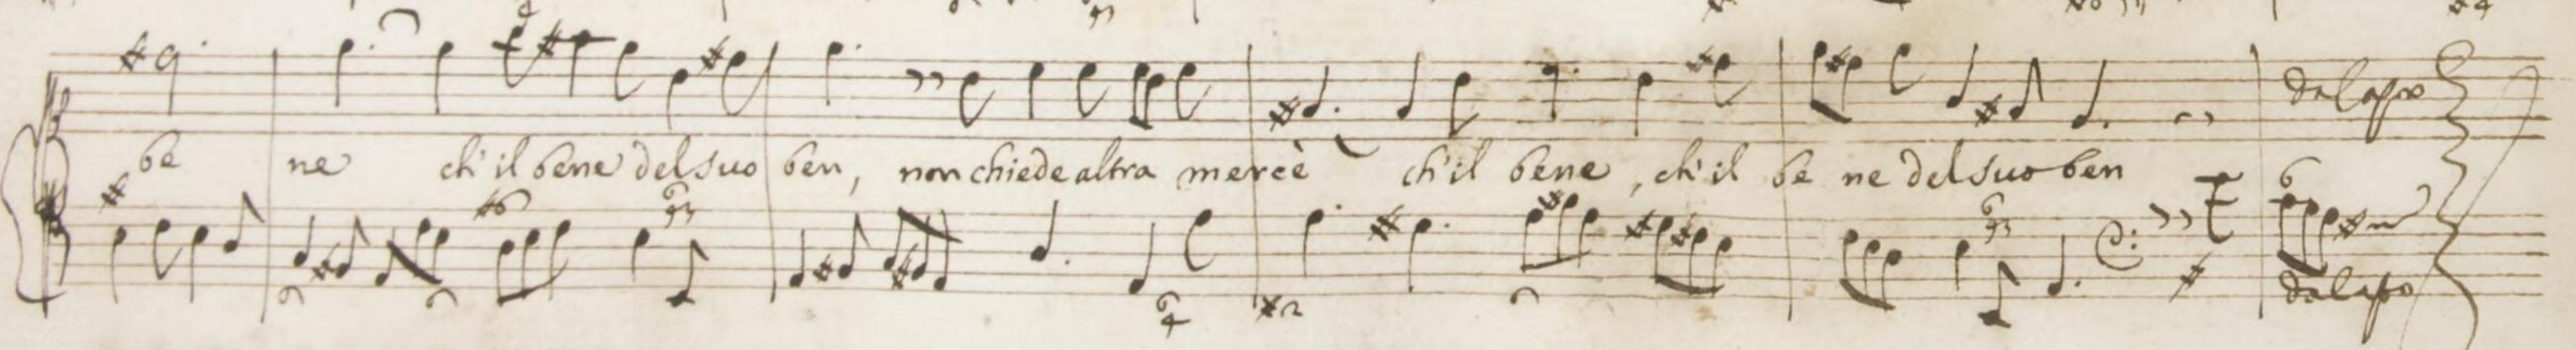 dalapo
be ne ch'il bene del suo ben, non chiede altra mercè ch'il bene, ch'il be ne del suo ben
dalapo